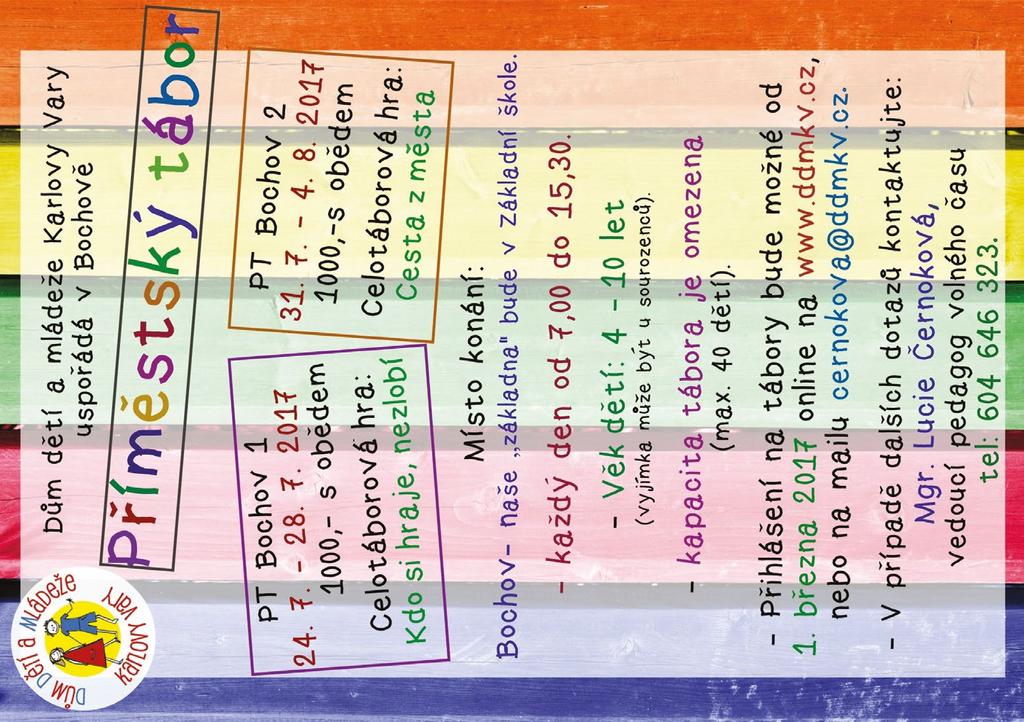 DŮM DĚTÍ A MLÁDEŽE
KARLOVY VARY
Dům dětí a mládeže Karlovy Vary
uspořádá v Bochově
Příměstský tábor
PT Bochov 1
24. 7. - 28. 7. 2017
1000,- s obědem
Celotáborová hra:
Kdo si hraje, nezlobí
PT Bochov 2
31. 7. - 4. 8. 2017
1000,-s obědem
Celotáborová hra:
Cesta z města
Místo konání:
Bochov- naše „základna" bude v Základní škole.
- každý den od 7,00 do 15,30.
- Věk dětí: 4 - 10 let
(vyjímka může být u sourozenců).
- kapacita tábora je omezena
(max. 40 dětí).
- Přihlášení na tábory bude možné od
1. března 2017 online na www.ddmkv.cz,
nebo na mailu cernokova@ddmkv.cz.
- V případě dalších dotazů kontaktujte:
Mgr. Lucie Černoková,
vedoucí pedagog volného času
tel: 604 646 323.